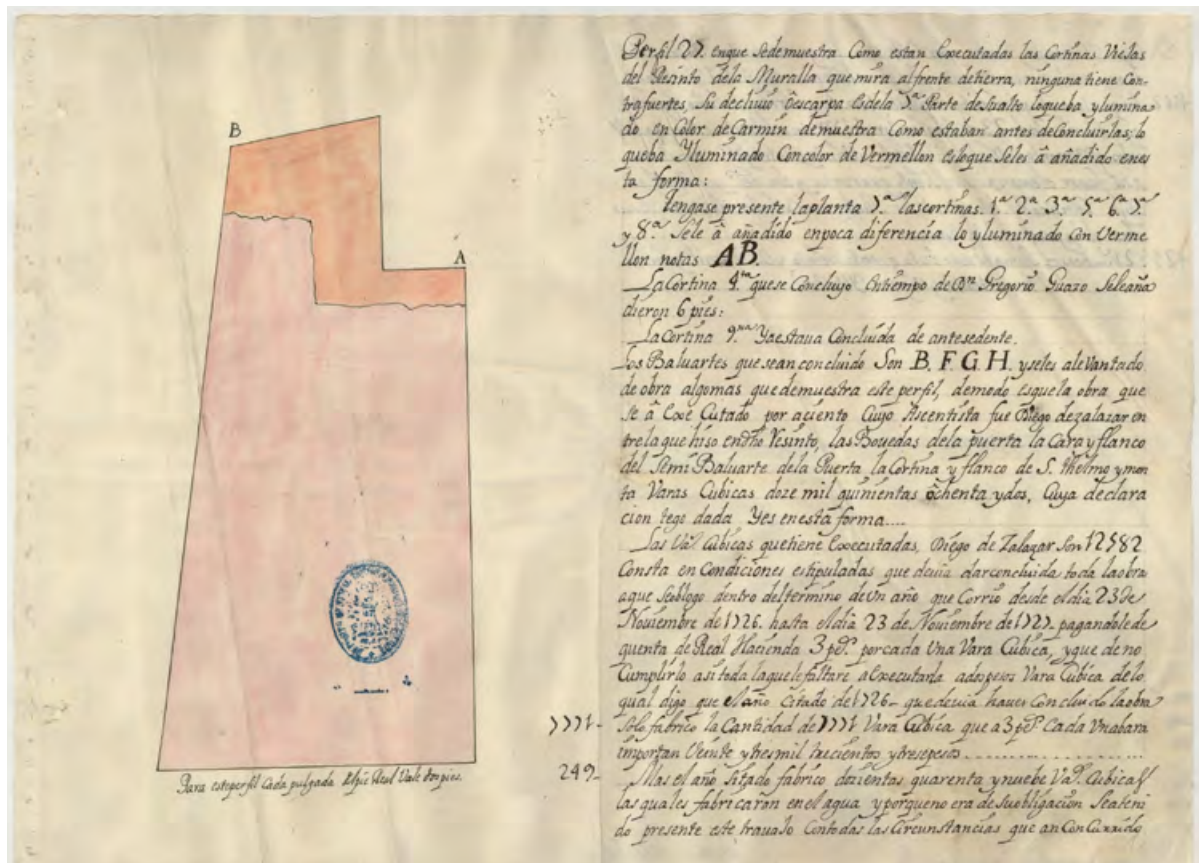 B
A
Para este perfil Cada pulgada del pie Real Vale dos pies.
Perfil 27. enque Sedemuestra Como estan Executadas las Cortinas Viejas
del Resinto dela Muralla que mira alfrente detierra, ninguna tiene Con-
trafuertes, Su declivio Escarpa esdela 7.ª Parte desualto loqueba yIumina
do en Color de Carmin demuestra Como estaban antes deConcluirlas; lo
queba Yluminado Concolor de Vermellon esloque Seles â añadido enes
ta forma:
Tengase presente laplanta 7.ª lascortinas. 1.ª 2.ª 3.ª 5.ª 6.ª 7.ª
y 8.ª Sele â añadido enpoca diferencia lo yluminado con Verme
llon notas AB.
La Cortina 4.ta quese Concluyo entiempo de Dn Gregorio Guazo Seleaña
dieron 6 pies:
La Cortina 9.na Yaestaua Concluida de antesedente.
Los Baluartes quesean concluido Son B. F. G. H. yseles alevantado
de obra algomas quedemuestra este perfil, demodo esquela obra que
se â Exe Cutado por aciento Cuyo Ascentista fue Diego dezalazar en
trelaque hiso endho Resinto, las Bouedas dela puerta la Cara y flanco
del Semi Baluarte dela Puerta la Cortina y flanco de S. Thelmo ymon
ta Varas Cubicas doze mil quinientas ochenta ydos, Cuya declara
cion tego dada Yes enesta forma....
Las Va.s Cubicas quetiene Executadas, Diego de Zalazar Son 12582
Consta en Condiciones estipuladas que devia darconcluida toda laobra
aque Seoblogo dentro deltermino deun año que Corrio desde eldia 23 de
Noviembre de 1726. hasta eldia 23 de Noviembre de 1727. pagandole de
quenta de Real Hacienda 3 pes. porcada Una Vara Cubica, yque de no
Cumplirlo asi toda laquele faltare a Executarla adospesos Vara Cubica delo
qual digo que el año Citado de 1726- quedevia haver Concluido laobra
7771- Solo fabrico la Cantidad de 7771 Vara Cubica que a 3 pes. Cada Vnabara
importan Veinte ytresmil trecientos ytrese pesos
249- Mas el año Sitado fabrico dozientas quarenta ynuebe Va.s Cubicas
las quales fabricaron en el agua y porqueno era de Suobligacion Seateni
do presente este travajo Contodas las Circunstancias que an Con Currido